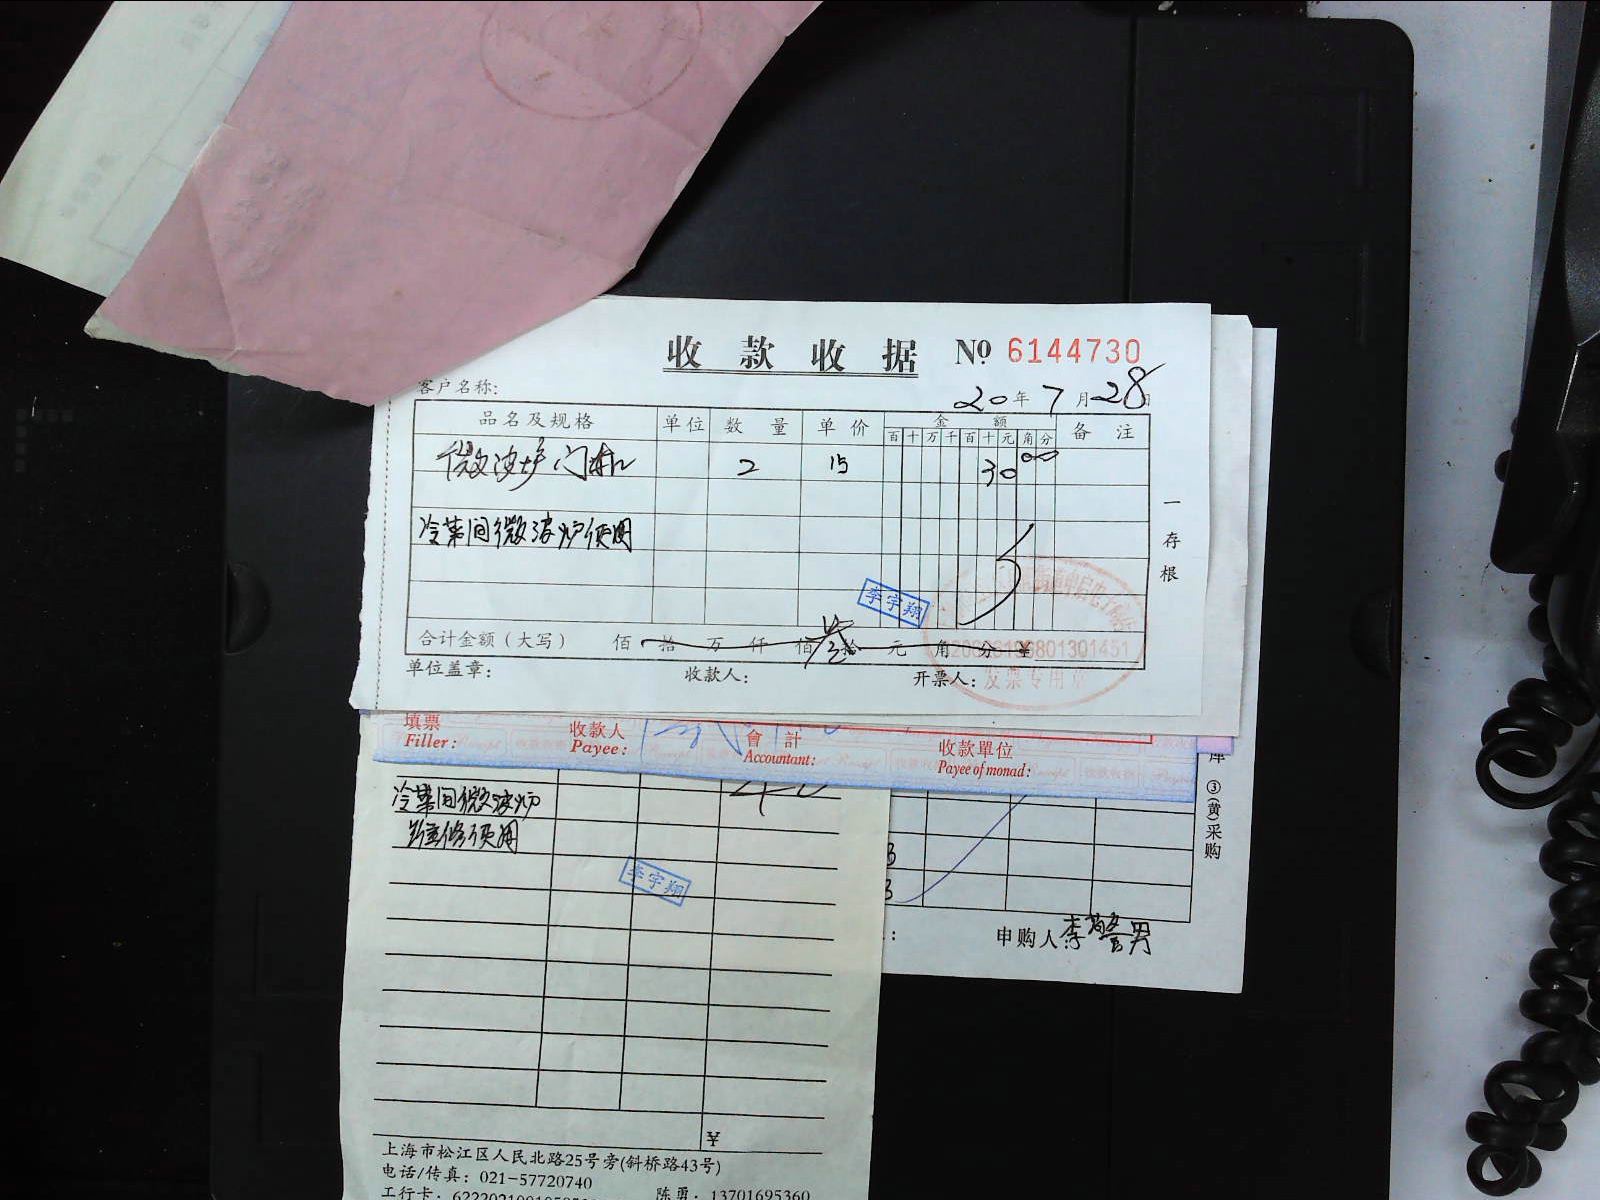 收款收据 № 6144730
客户名称: 20年7月28日
品名及规格 单位 数量 单价 金额 备注
百十万千百十元角分
微波炉门 2 15 30 00
冷菜间微波炉使用
一存根
李宇翔
合计金额（大写） 佰 拾 万 仟 佰 叁拾 元 角 分 ¥
发票专用章
单位盖章: 收款人: 开票人:
填票 收款人 會計 收款單位
Filler: Payee: Accountant: Payee of monad:
库 ③(黄)采购
冷菜间微波炉
维修使用
李宇翔
申购人:李警男
¥
上海市松江区人民北路25号旁(斜桥路43号)
电话/传真: 021-57720740
工行卡: 陈勇: 13701695360